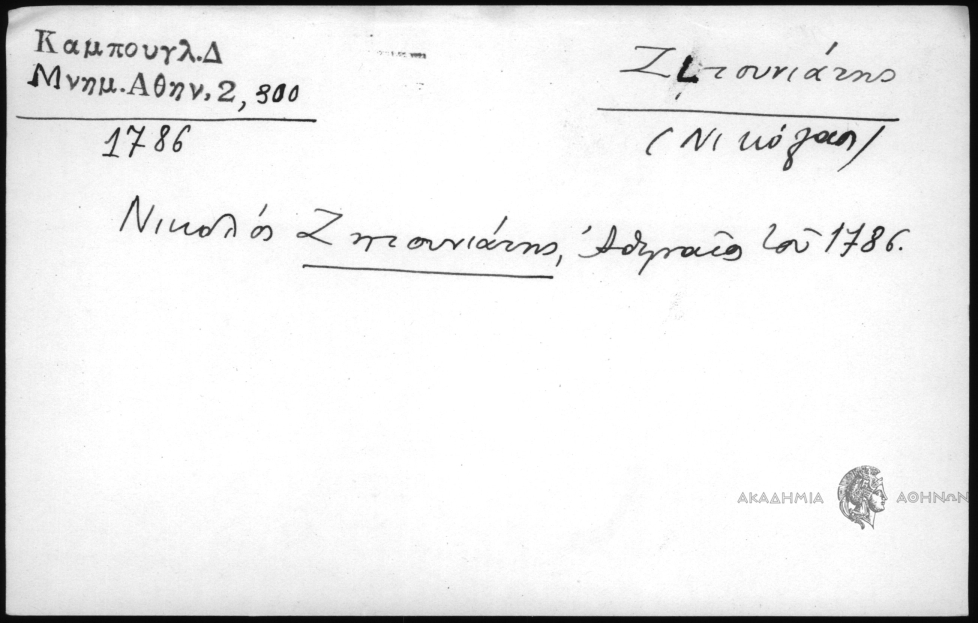 Καμπουγλ.Δ
Μνημ.Αθην, 2, 300
1786
Ζιτουνιάτης
(Νικόλαος)
Νικολός Ζητουνιάτης, Ἀθηναῖος τοῦ 1786.
ΑΚΑΔΗΜΙΑ ΑΘΗΝΩΝ